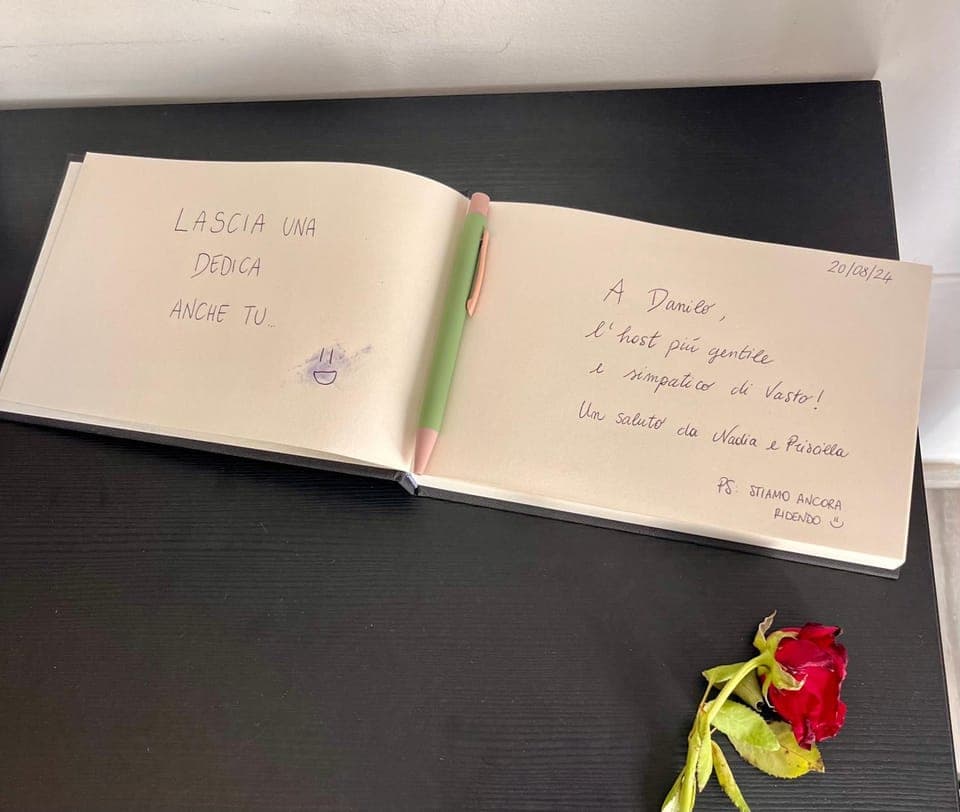 LASCIA UNA
DEDICA
ANCHE TU...
20/08/24
A Danilo,
l'host piú gentile
e simpatico di Vasto!
Un saluto da Nadia e Priscilla
PS: STIAMO ANCORA
RIDENDO